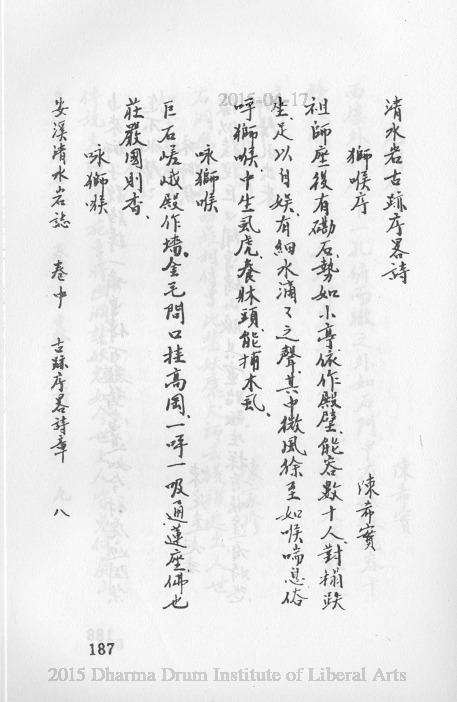 清水岩古跡序畧詩
獅喉序 陳希實
祖師座後有磡石，勢如小亭，依作殿壁，能容數十人，對榻趺
坐，足以自娛，有細水涌々之聲，其中微風徐至，如喉喘息，俗
呼獅喉，中生虱虎，養牀頭，能捕木虱。
咏獅喉
巨石嵯峨殿作墻，金毛問口挂高岡，一呼一吸通蓮座，佛也
莊嚴國則香。
咏獅喉
安溪清水岩誌 卷中 古跡序畧詩章 八
187
2015-04-17
2015 Dharma Drum Institute of Liberal Arts